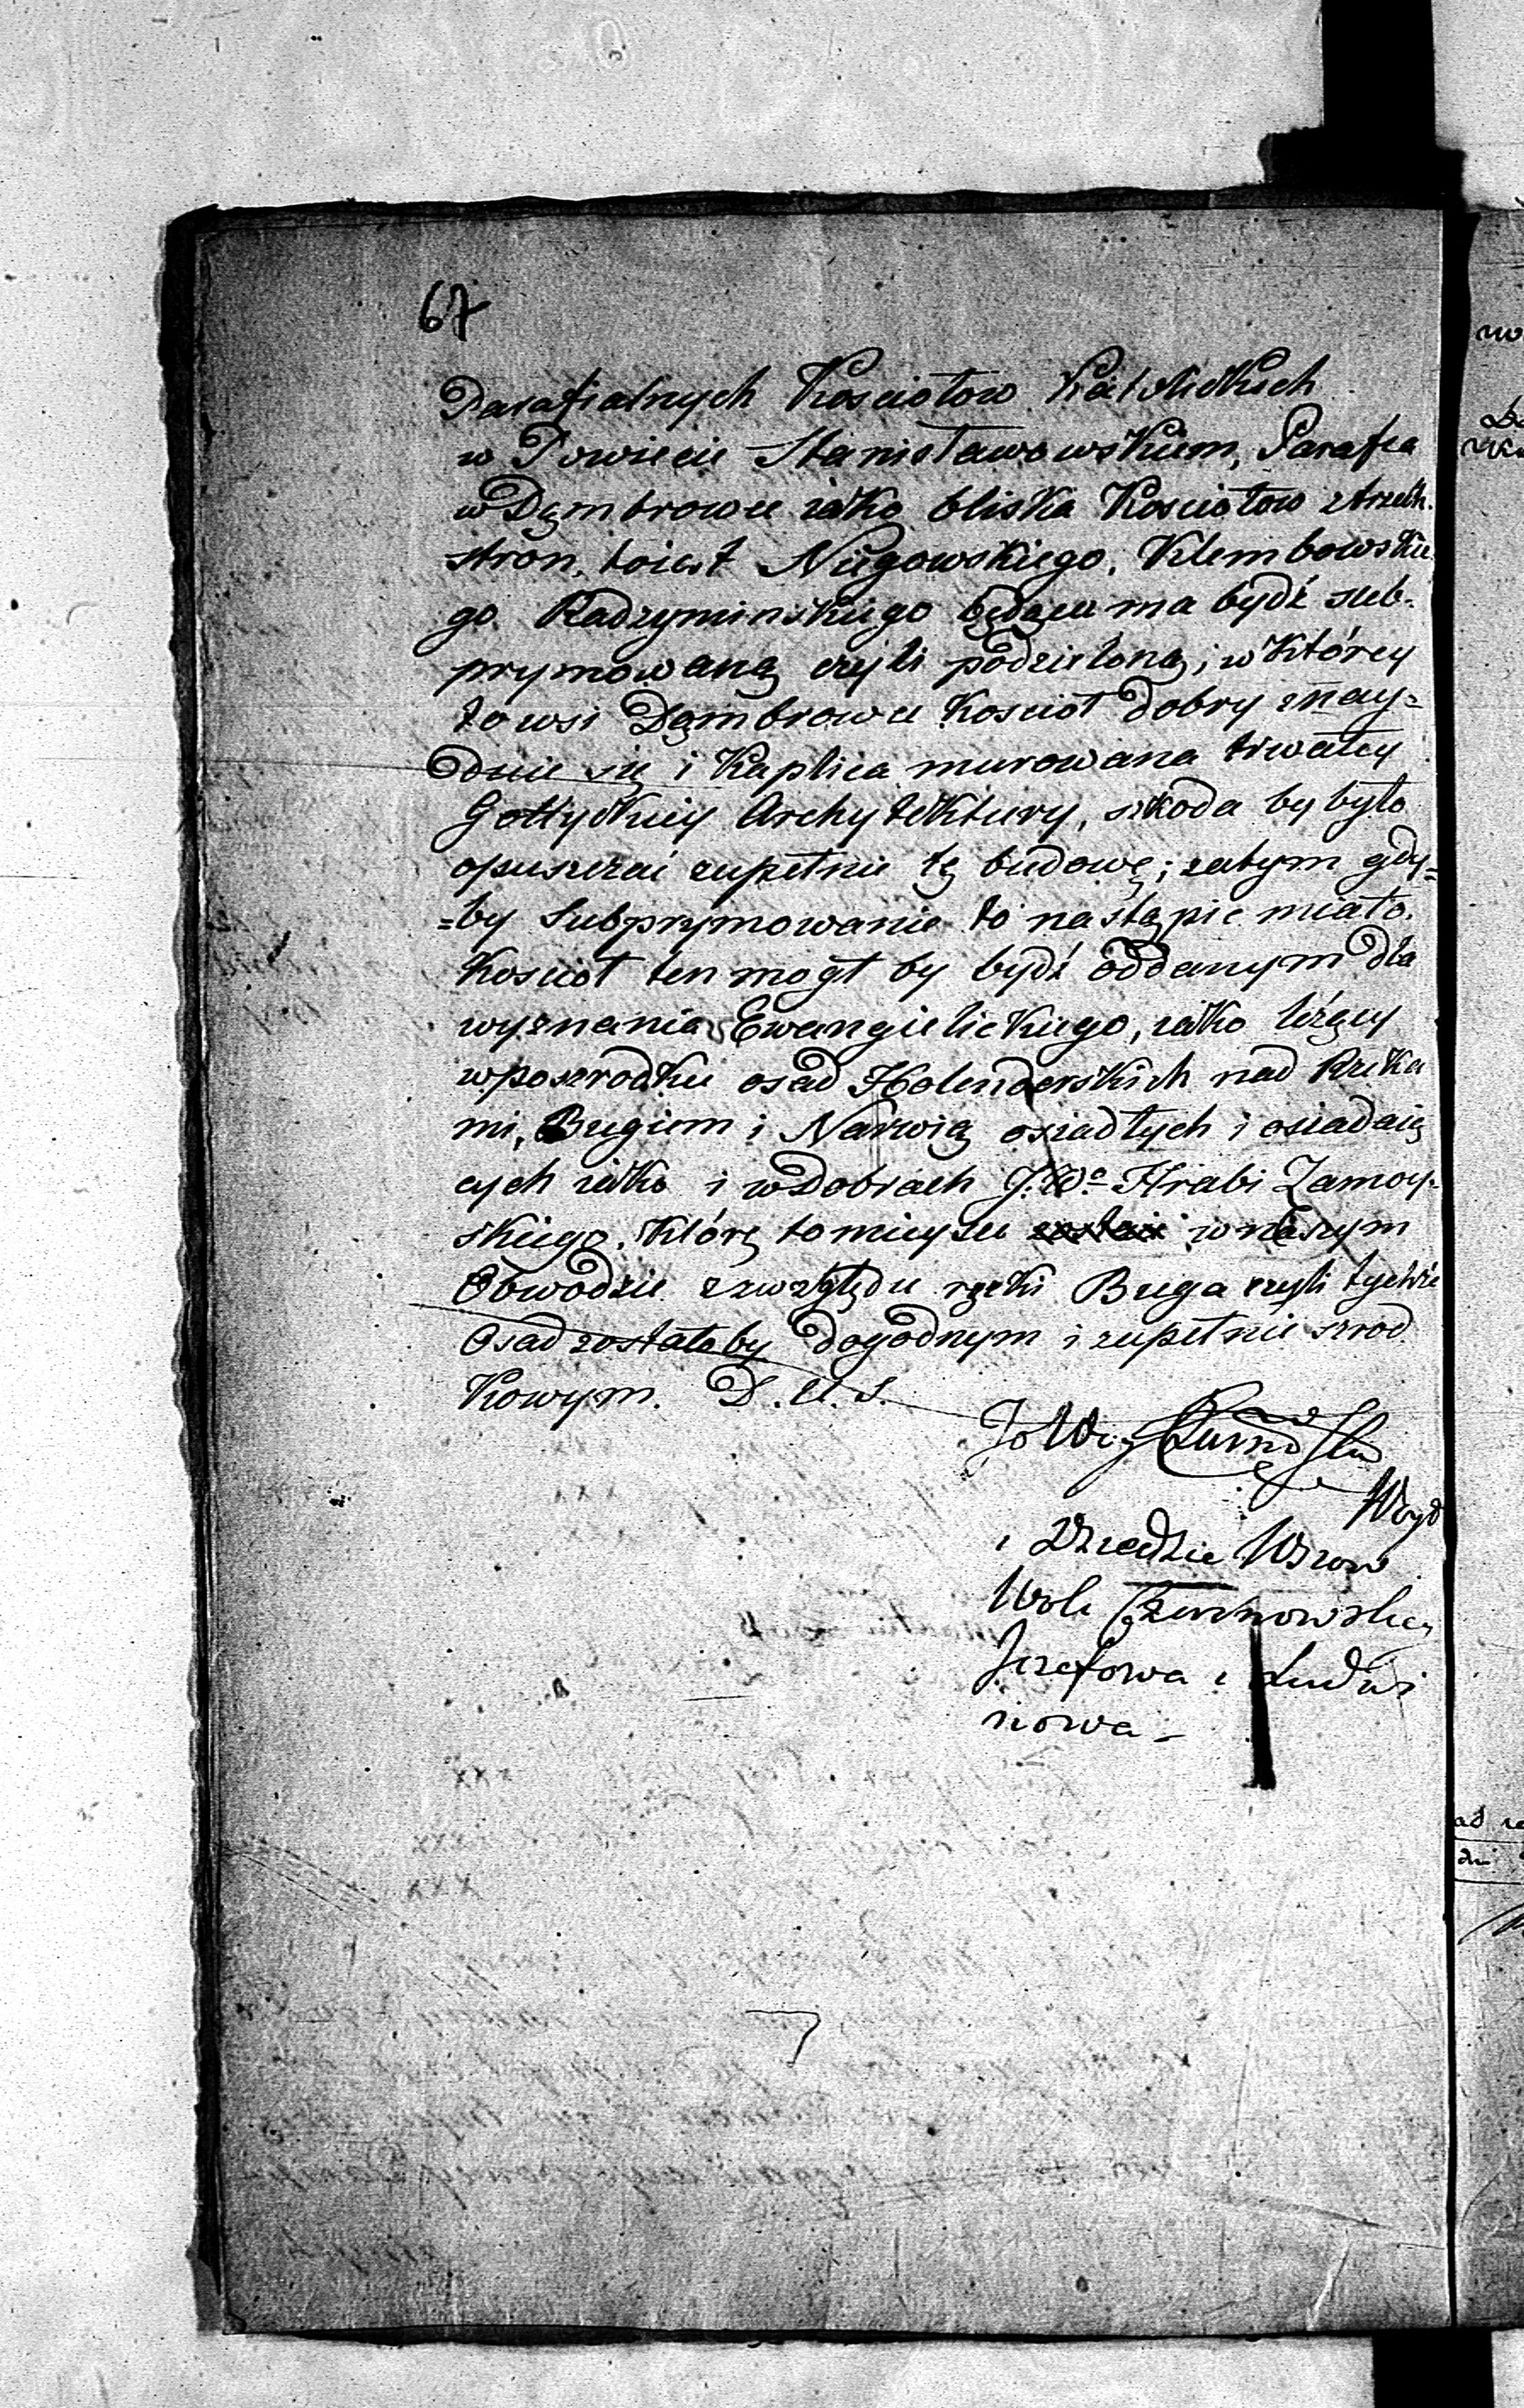 67
Parafialnych Kosciołow Katolickich
w Powiecie Stanisławowskiem, Parafia
w Dąmbrowce iako bliska Kosciołow z trzech
stron, toiest Niegowskiego, Klembowskie
go Radzyminskiego będąca ma bydź sub-
prymowaną czyli podzieloną; w którey
to wsi Dąmbrowce Kosciół dobry znay=
dzie się i Kaplica murowana trwałey
Gottyckiey Architektury, szkoda by było
opuszczać zupełnie tę budowę; zatym gdy=
=by Subprymowanie to nastąpić miało.
Kosciół ten mógł by bydź oddanym dla
wyznania Ewangielickiego, iako leżący
wposrodku osad Holenderskich nad Rzeka
mi, Bugiem i Narwią osiadłych i osiadaią
cych iako i w Dobrach J.W.o Hrabi Zamoy-
skiego, które to mieysce w naszym
Obwodzie zewzględu rzeki Buga czyli tychże
Osad zostałoby dogodnym i zupełnie srod
kowym. D. U. S.
Woyt
Wsiow
Woli
Jozefowa i Ludwi
nowa -